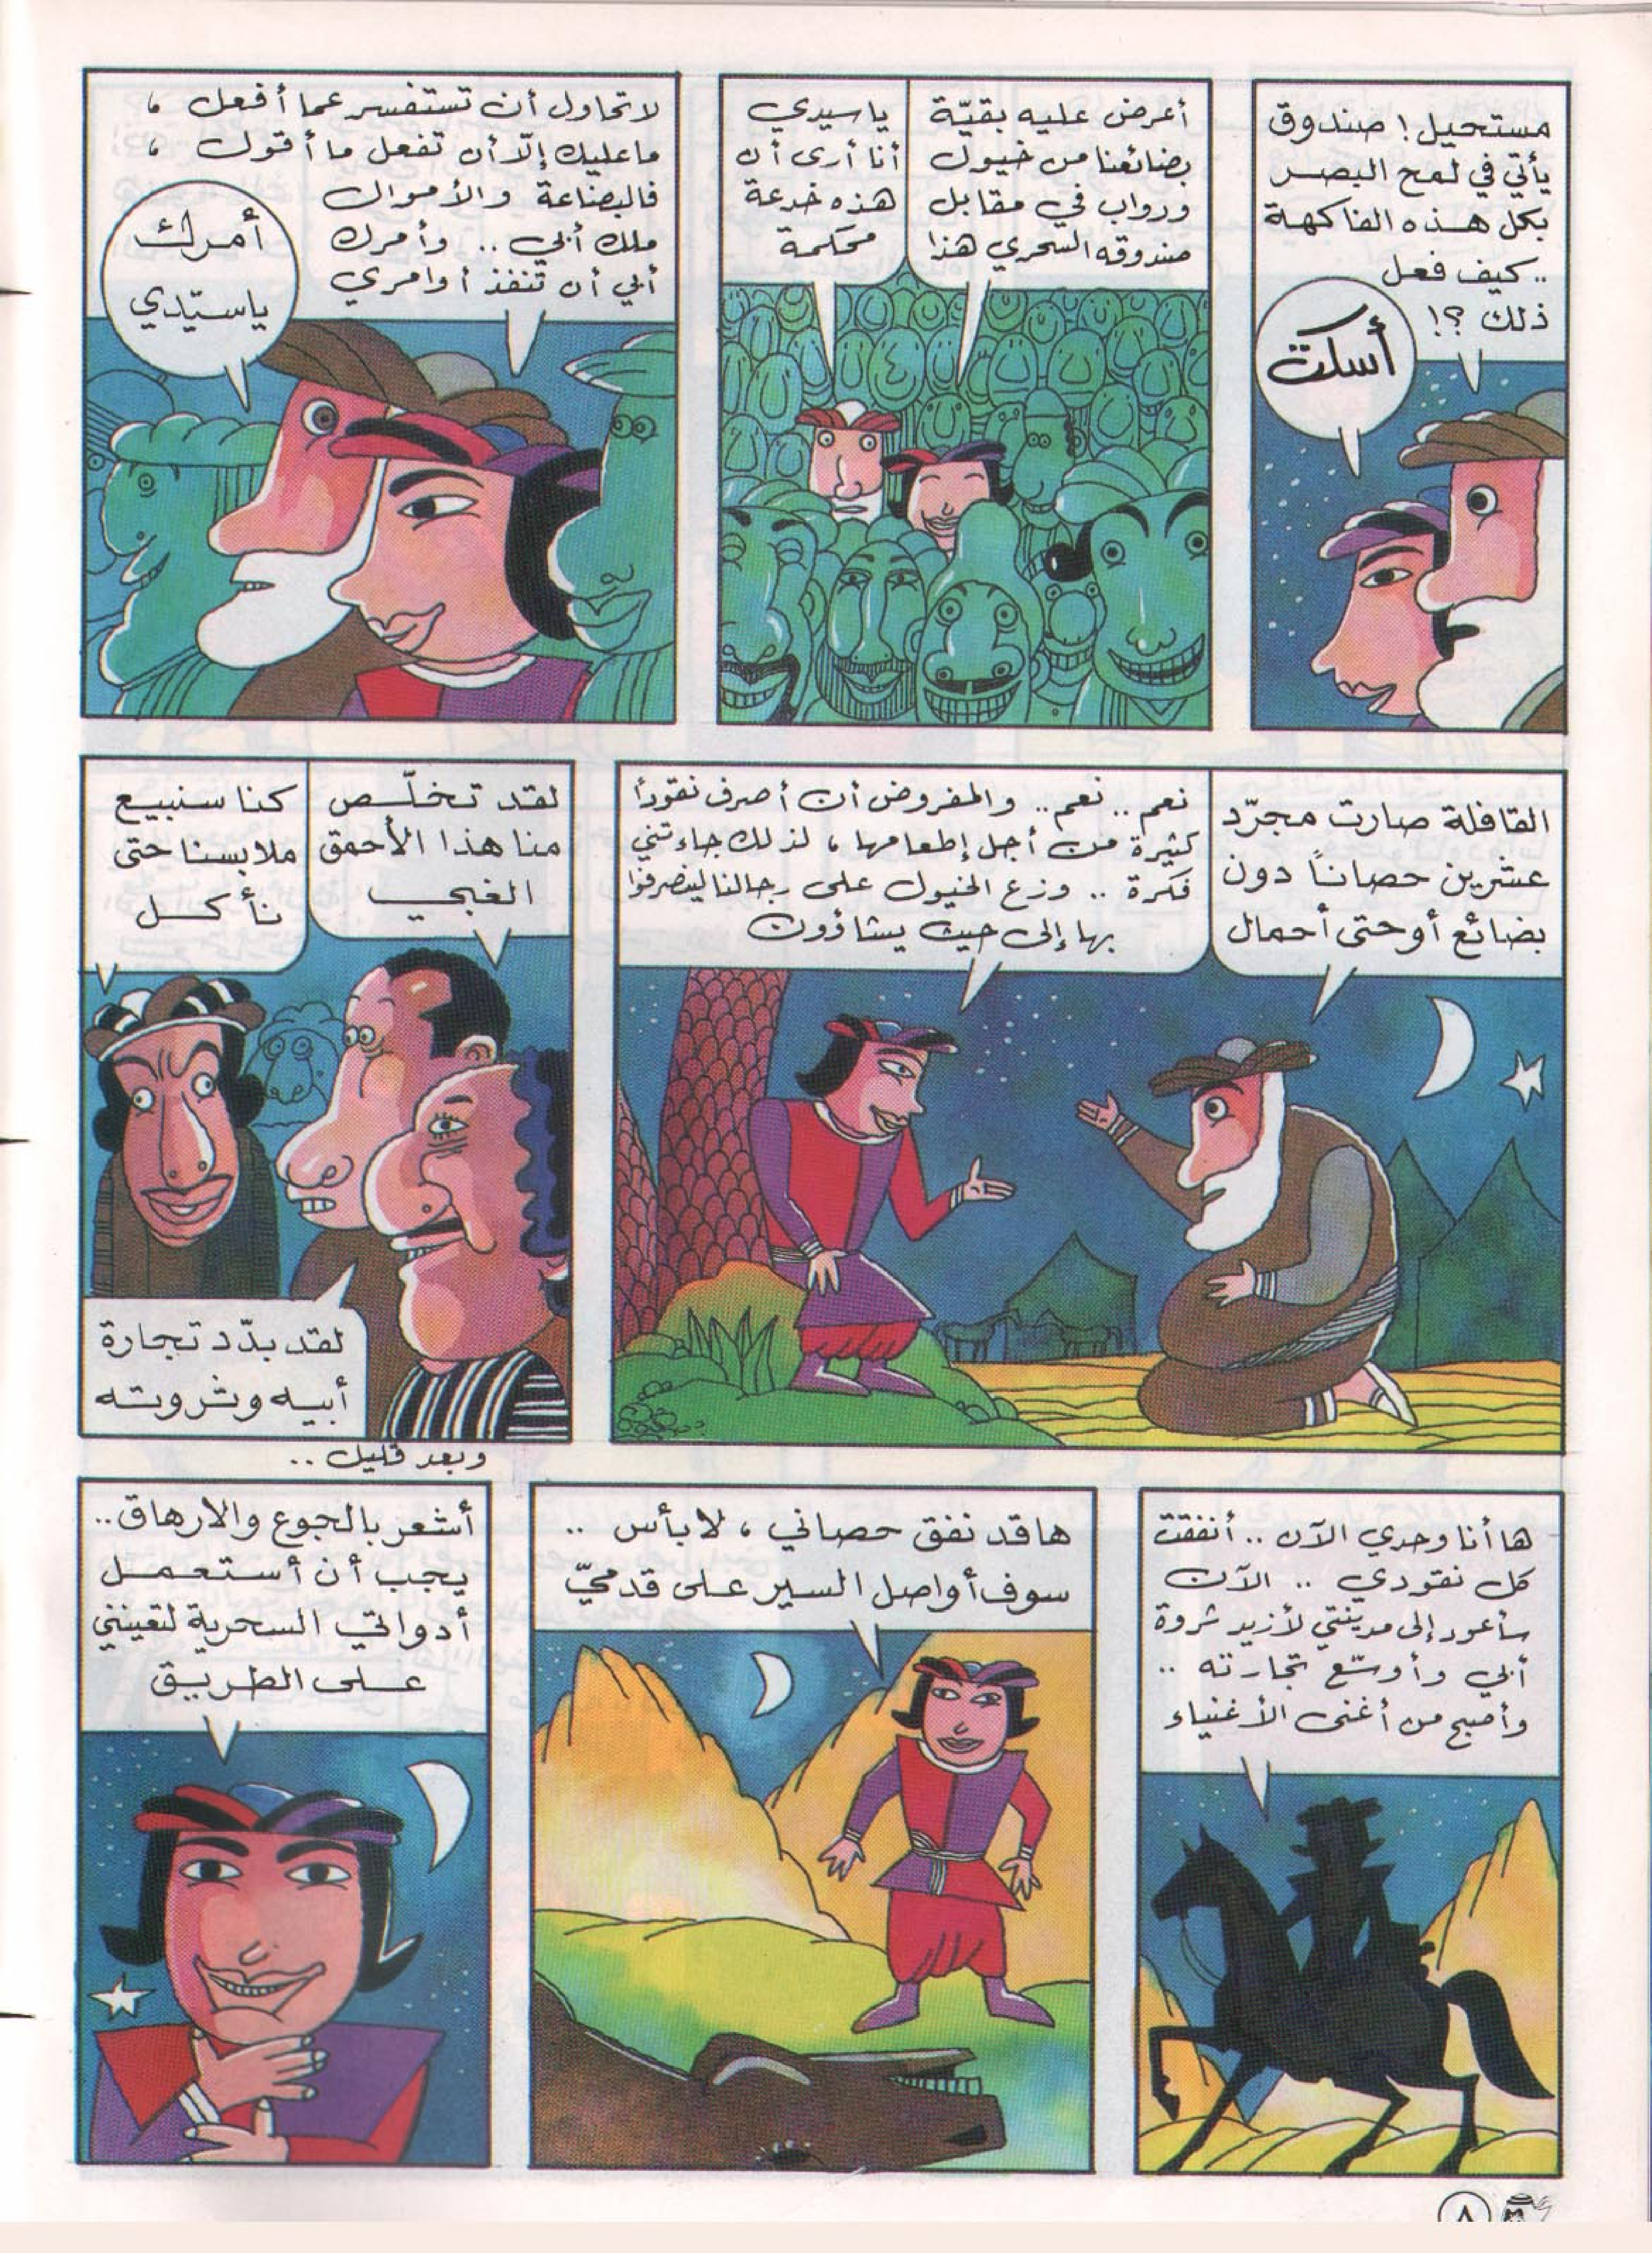 مستحيل! صندوق
يأتي في لمح البصر
بكل هذه الفاكهة
.. كيف فعل
ذلك ؟!
أسكت
أعرض عليه بقيّة
بضائعنا من خيول
ودواب في مقابل
صندوقه السحري هذا
ياسيدي
أنا أرى أن
هذه خدعة
محكمة
لا تحاول أن تستفسر عما أفعل ،
ما عليك إلّا أن تفعل ما أقول ،
فالبضاعة والأموال
ملك أبي .. وأمرك
أبي أن تنفذ أوامري
أمرك
ياسيّدي
القافلة صارت مجرّد
عشرين حصاناً دون
بضائع أو حتى أحمال
نعم .. نعم .. والمفروض أن أصرف نقوداً
كثيرة من أجل إطعامها ، لذلك جاءتني
فكرة .. وزع الخيول على رجالنا لينصرفوا
بها إلى حيث يشاؤون
لقد تخلّص
منا هذا الأحمق
الغبي
كنا سنبيع
ملابسنا حتى
نأكل
لقد بدّد تجارة
أبيه وثروته
ها أنا وحدي الآن .. أنفقت
كل نقودي .. الآن
سأعود إلى مدينتي لأزيد ثروة
أبي وأوسّع تجارته ..
وأصبح من أغنى الأغنياء
ها قد نفق حصاني ، لا بأس ..
سوف أواصل السير على قدميّ
وبعد قليل ..
أشعر بالجوع والارهاق ..
يجب أن أستعمل
أدواتي السحرية لتعينني
على الطريق
٨